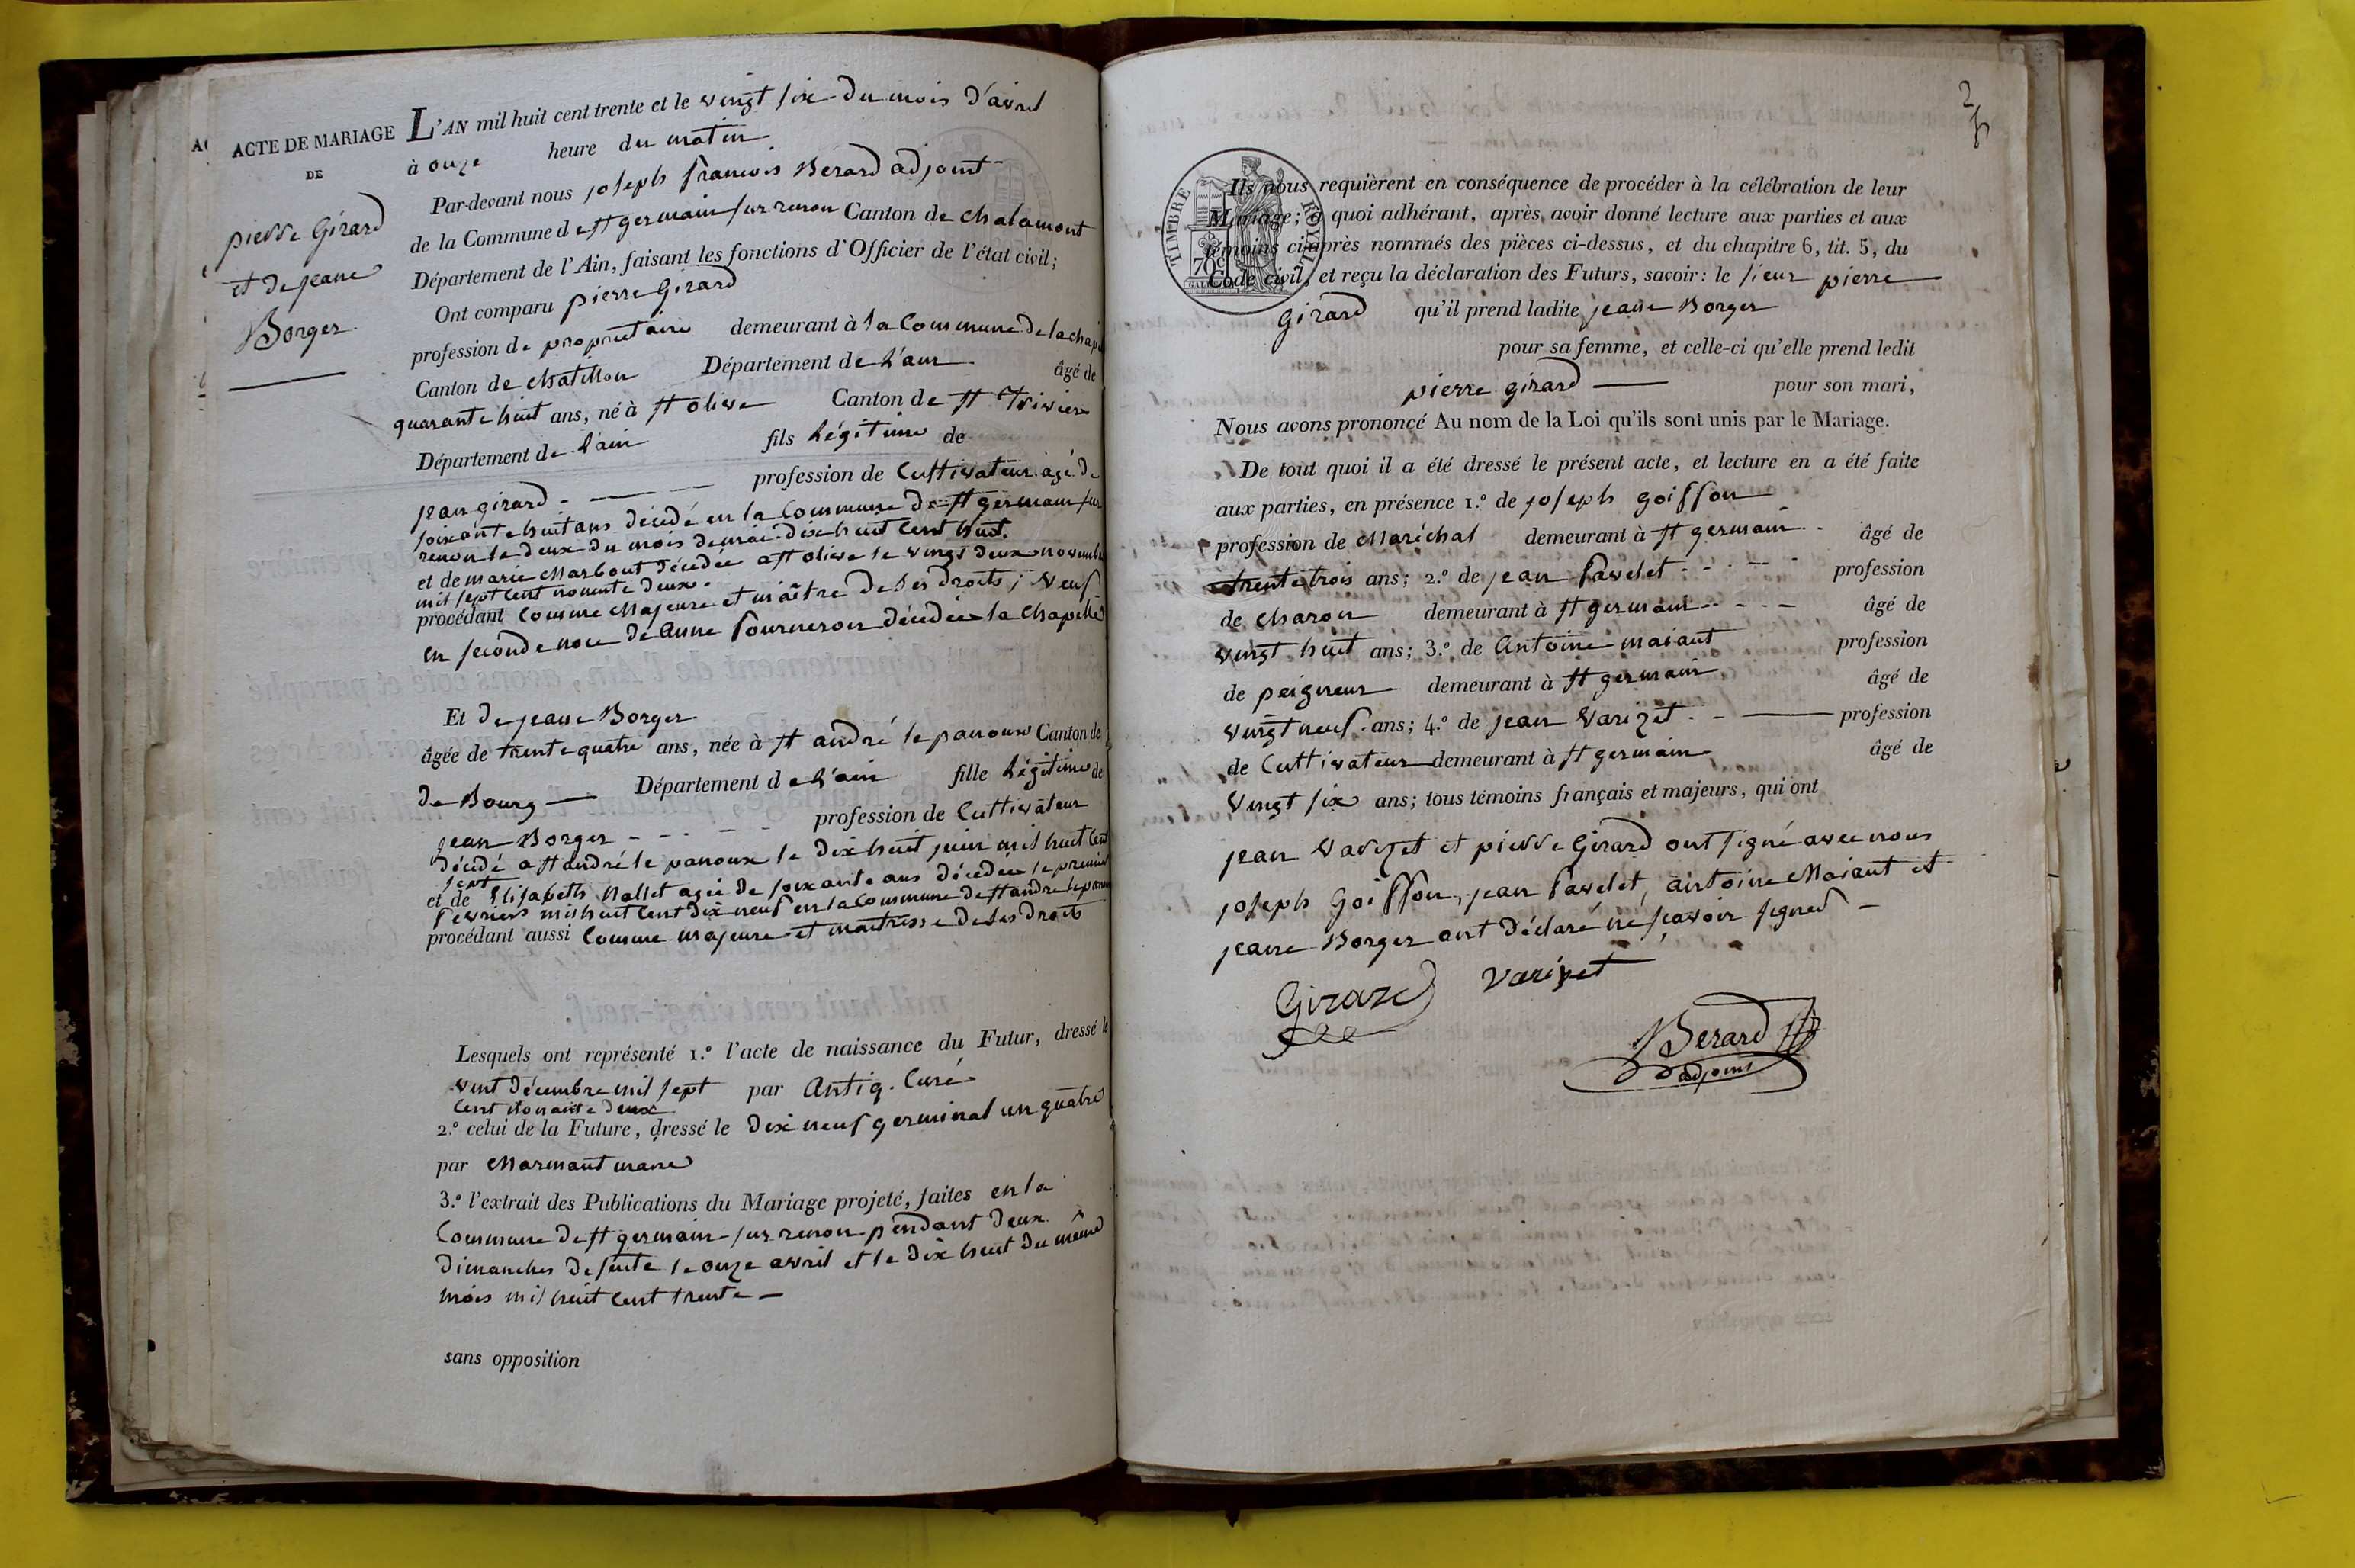 ACTE DE MARIAGE
DE
pierre Girard
et de jeane
Borger
L'AN mil huit cent trente et le vingt six du mois d'avril
à onze heure du matin
Par-devant nous joseph francois Berard adjoint
de la Commune de st germain sur renon Canton de chalamont
Département de l'Ain, faisant les fonctions d'Officier de l'état civil;
Ont comparu pierre Girard
profession de propriétaire demeurant à la Commune de la chap
Canton de chatillon Département de l'ain âgé de
quarante huit ans, né à st olive Canton de st Trivier
Département de l'ain fils légitime de
jean girard profession de Cultivateur agé de
soixante huit ans décédé en la Commune de st germain sur
renon le deux du mois de mai dix huit cent huit.
et de marie Marbout décédée a st olive le vingt deux novembre
mil sept cent nonente deux.
procédant comme Majeure et maître de ses droits; veuf
en seconde noce de anne fourneron décédée la chapelle
Et de jeane Borger
âgée de trente quatre ans, née à st andré le panoux Canton de
de Bourg Département de l'ain fille légitime de
jean Borger profession de Cultivateur
décédé a st andré le panoux le dix huit juin mil huit cent
sept
et de Elisabeth Nallet agée de soixante ans décédée le premier
fevrier mil huit cent dix neuf en la commune de st andre le panoux
procédant aussi comme majeure et maitresse de ses droits
Lesquels ont représenté 1.º l'acte de naissance du Futur, dressé le
vint décembre mil sept par Antig. Curé
cent nonante deux
2.º celui de la Future, dressé le dix neuf germinal un quatre
par Marmant mare
3.º l'extrait des Publications du Mariage projeté, faites en la
Commune de st germain sur renon pendant deux
dimanches de suite le onze avril et le dix huit du même
mois mil huit cent trente
sans opposition
2
TIMBRE ROYAL
70c
Ils nous requièrent en conséquence de procéder à la célébration de leur
Mariage; à quoi adhérant, après avoir donné lecture aux parties et aux
témoins ci-après nommés des pièces ci-dessus, et du chapitre 6, tit. 5, du
Code civil, et reçu la déclaration des Futurs, savoir: le sieur pierre
Girard qu'il prend ladite jeane Borger
pour sa femme, et celle-ci qu'elle prend ledit
pierre girard pour son mari,
Nous avons prononcé Au nom de la Loi qu'ils sont unis par le Mariage.
De tout quoi il a été dressé le présent acte, et lecture en a été faite
aux parties, en présence 1.º de joseph goiffon
profession de Maréchal demeurant à st germain âgé de
trente trois ans; 2.º de jean favelet profession
de charon demeurant à st germain âgé de
vingt huit ans; 3.º de Antoine maiant profession
de peigneur demeurant à st germain âgé de
vingt neuf ans; 4.º de jean Varizet profession
de Cultivateur demeurant à st germain âgé de
vingt six ans; tous témoins français et majeurs, qui ont
jean Varizet et pierre Girard ont signé avec nous
joseph Goiffon, jean favelet, antoine Maiant et
jeane Borger ont déclaré ne sçavoir signer
Girard Varizet
Berard
adjoint